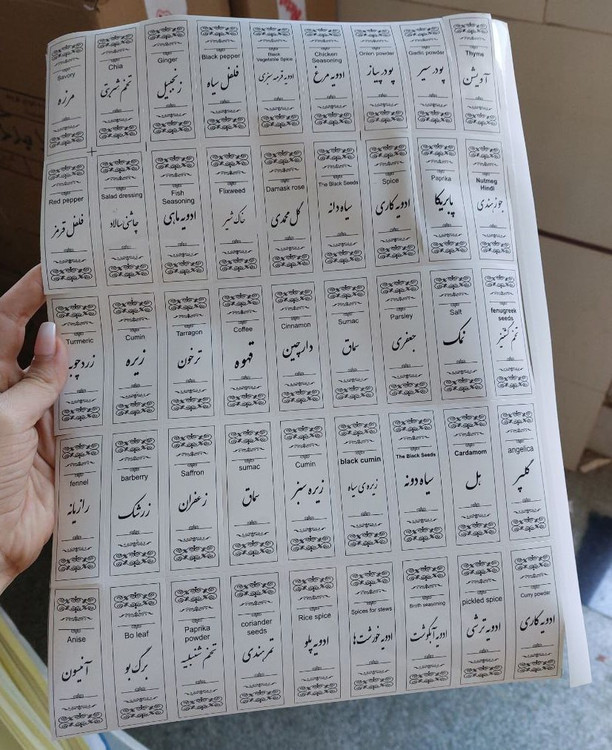 Savory
مرزه
Chia
تخم شربتی
Ginger
زنجبیل
Black pepper
فلفل سیاه
Vegetable Spice
ادویه قرمه سبزی
Chicken
Seasoning
ادویه مرغ
Onion powder
پودر پیاز
Garlic powder
پودر سیر
Thyme
آویشن
Red pepper
فلفل قرمز
Salad dressing
چاشنی سالاد
Fish
Seasoning
ادویه ماهی
Flaxweed
خاکشیر
Damask rose
گل محمدی
The Black Seeds
سیاه دانه
Spice
ادویه کاری
Paprika
پاپریکا
Nutmeg
Hindi
جوز هندی
Turmeric
زردچوبه
Cumin
زیره
Tarragon
ترخون
Coffee
قهوه
Cinnamon
دارچین
Sumac
سماق
Parsley
جعفری
Salt
نمک
fenugreek
seeds
تخم گشنیز
fennel
رازیانه
barberry
زرشک
Saffron
زعفران
sumac
سماق
Cumin
زیره سبز
black cumin
زیره ی سیاه
The Black Seeds
سیاه دونه
Cardamom
هل
angelica
گلپر
Anise
آنیسون
Bo leaf
برگ بو
Paprika
powder
تخم شنبلیه
coriander
seeds
تمر هندی
Rice spice
ادویه پلو
Spices for stews
ادویه خورشت ها
Broth seasoning
ادویه آبگوشت
pickled spice
ادویه ترشی
Curry powder
ادویه کاری